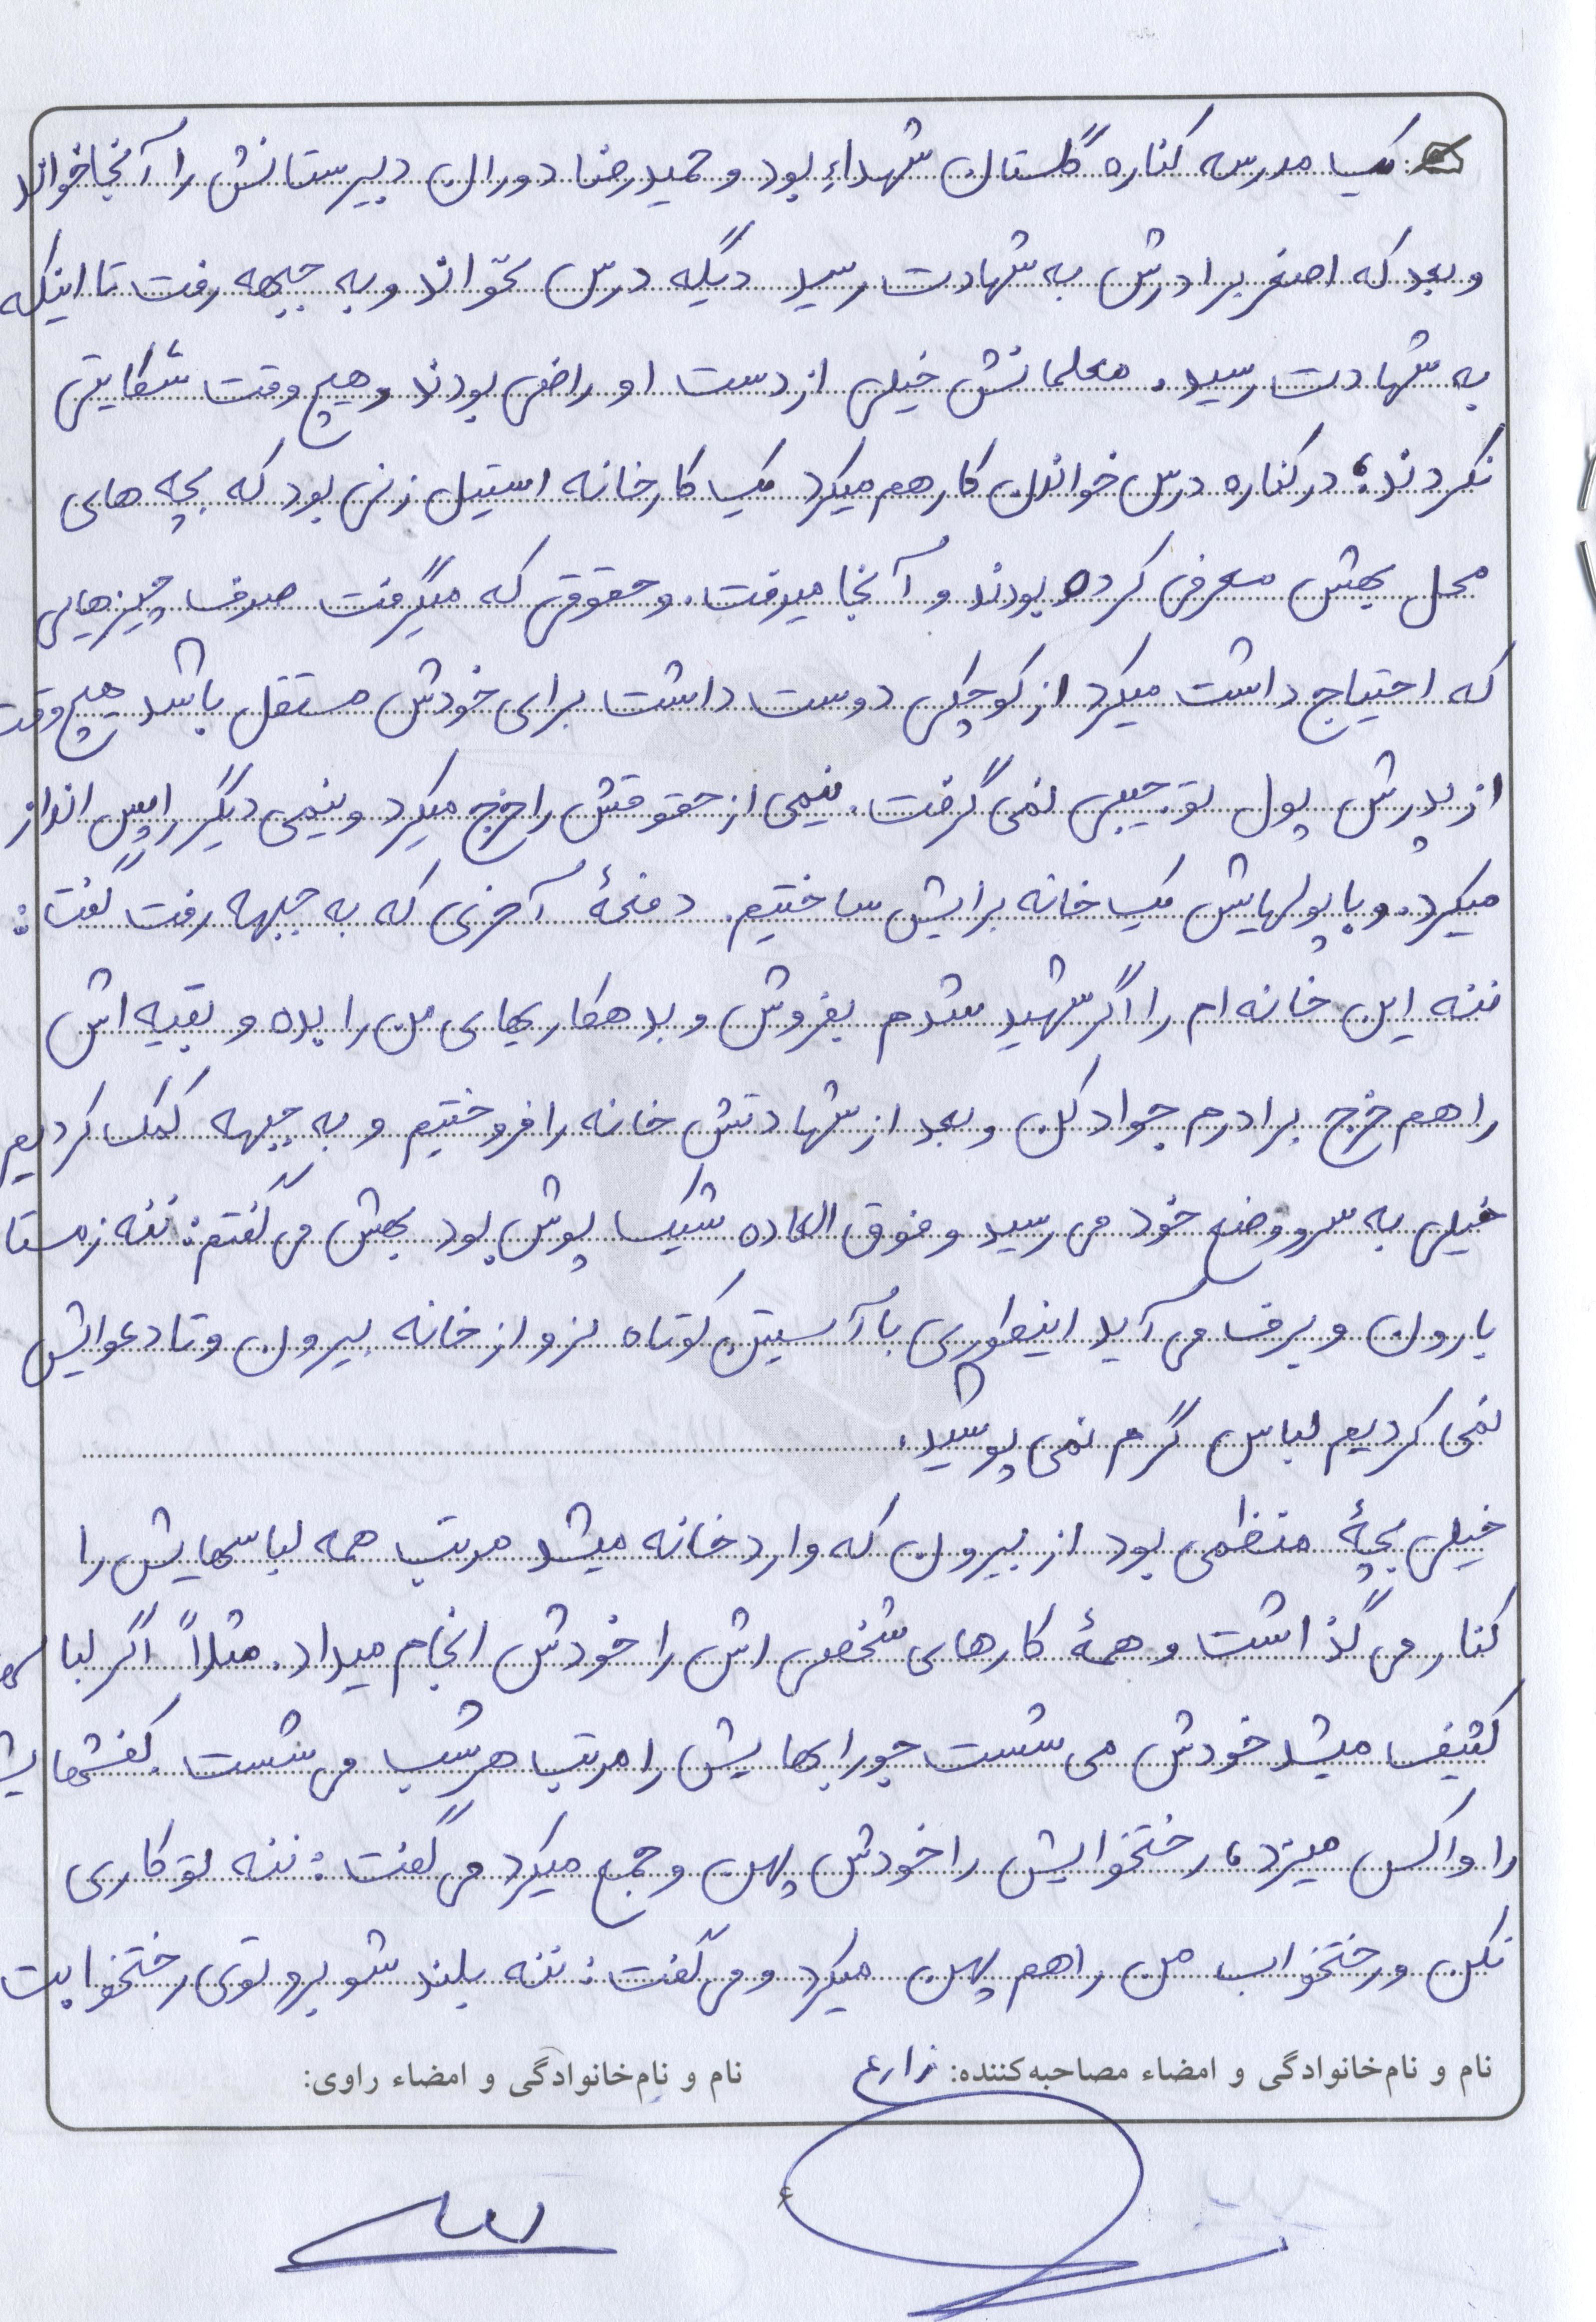 یک مدرسه کناره گلستان شهداء بود و حمیدرضا دوران دبیرستانش را آنجا خواند
و بعد که اصغر برادرش به شهادت رسید دیگه درس نخواند و به جبهه رفت تا اینکه
به شهادت رسید. معلمانش خیلی از دست او راضی بودند و هیچ وقت شکایتی
نکردند؛ در کناره درس خواندن کار هم میکرد یک کارخانه استیل زنی بود که بچه های
محل بهش معرفی کرده بودند و آنجا میرفت. و حقوقی که میگرفت صرف چیزهایی
که احتیاج داشت میکرد از کوچکی دوست داشت برای خودش مستقل باشد هیچ وقت
از پدرش پول تو جیبی نمی گرفت. نیمی از حقوقش را خرج میکرد و نیمی دیگر را پس انداز
میکرد. و با پولهایش یک خانه برایش ساختیم. دفعهٔ آخری که به جبهه رفت گفت:
ننه این خانه ام را اگر شهید شدم بفروش و بدهکاریهای من را بده و بقیه اش
را هم خرج برادرم جواد کن و بعد از شهادتش خانه را فروختیم و به جبهه کمک کردیم
خیلی به سر و وضع خود می رسید و فوق العاده شیک پوش بود بهش می گفتم: ننه زمستا
بارون و برف می آید اینطوری با آستین کوتاه نرو از خانه بیرون و تا دعوایش
نمی کردیم لباس گرم نمی پوشید.
خیلی بچهٔ منظمی بود از بیرون که وارد خانه میشد مرتب همه لباسهایش را
کنار می گذاشت و همهٔ کارهای شخصی اش را خودش انجام میداد. مثلاً اگر
کثیف میشد خودش می شست جورابهایش را مرتب هر شب می شست. کفشهایش
را واکس میزد، رختخوابش را خودش پهن و جمع میکرد می گفت: ننه تو کاری
نکن و رختخواب من را هم پهن میکرد و می گفت: ننه بلند شو برو توی رختخوابت
نام و نام‌خانوادگی و امضاء مصاحبه‌کننده: زارع
نام و نام‌خانوادگی و امضاء راوی:
۶